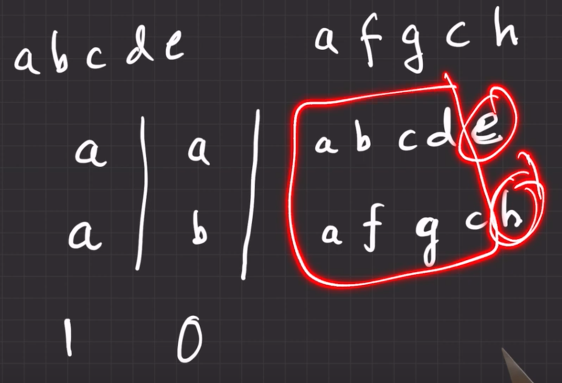 abcde afgch
a a abcde
a b afgch
1 0